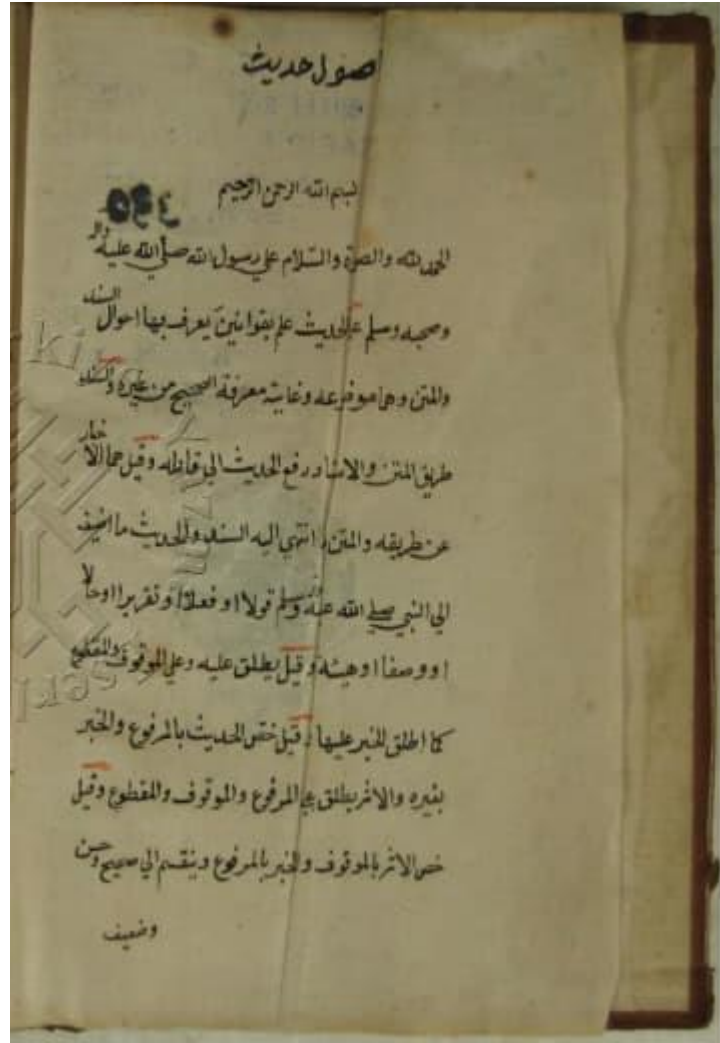 اصول حديث
بسم الله الرحمن الرحيم
الحمد لله والصلوة والسلام علي رسول الله صلي الله عليه واله
وصحبه وسلم علم الحديث علم بقوانين يعرف بها احوال السند
والمتن وهما موضوعه وغايته معرفة الصحيح من غيره والسند
طريق المتن والاسناد رفع الحديث الي قائله وقيل هما الاخبار
عن طريقه والمتن ما انتهي اليه السند والحديث ما اضيف
الي النبي صلي الله عليه وسلم قولا او فعلا او تقريرا او حالا
او وصفا او هيئة وقيل يطلق عليه وعلي الموقوف والمقطوع
كما اطلق الخبر عليها وقيل خص الحديث بالمرفوع والخبر
بغيره والاثر يطلق علي المرفوع والموقوف والمقطوع وقيل
خص الاثر بالموقوف والخبر بالمرفوع وينقسم الي صحيح وحسن
وضعيف